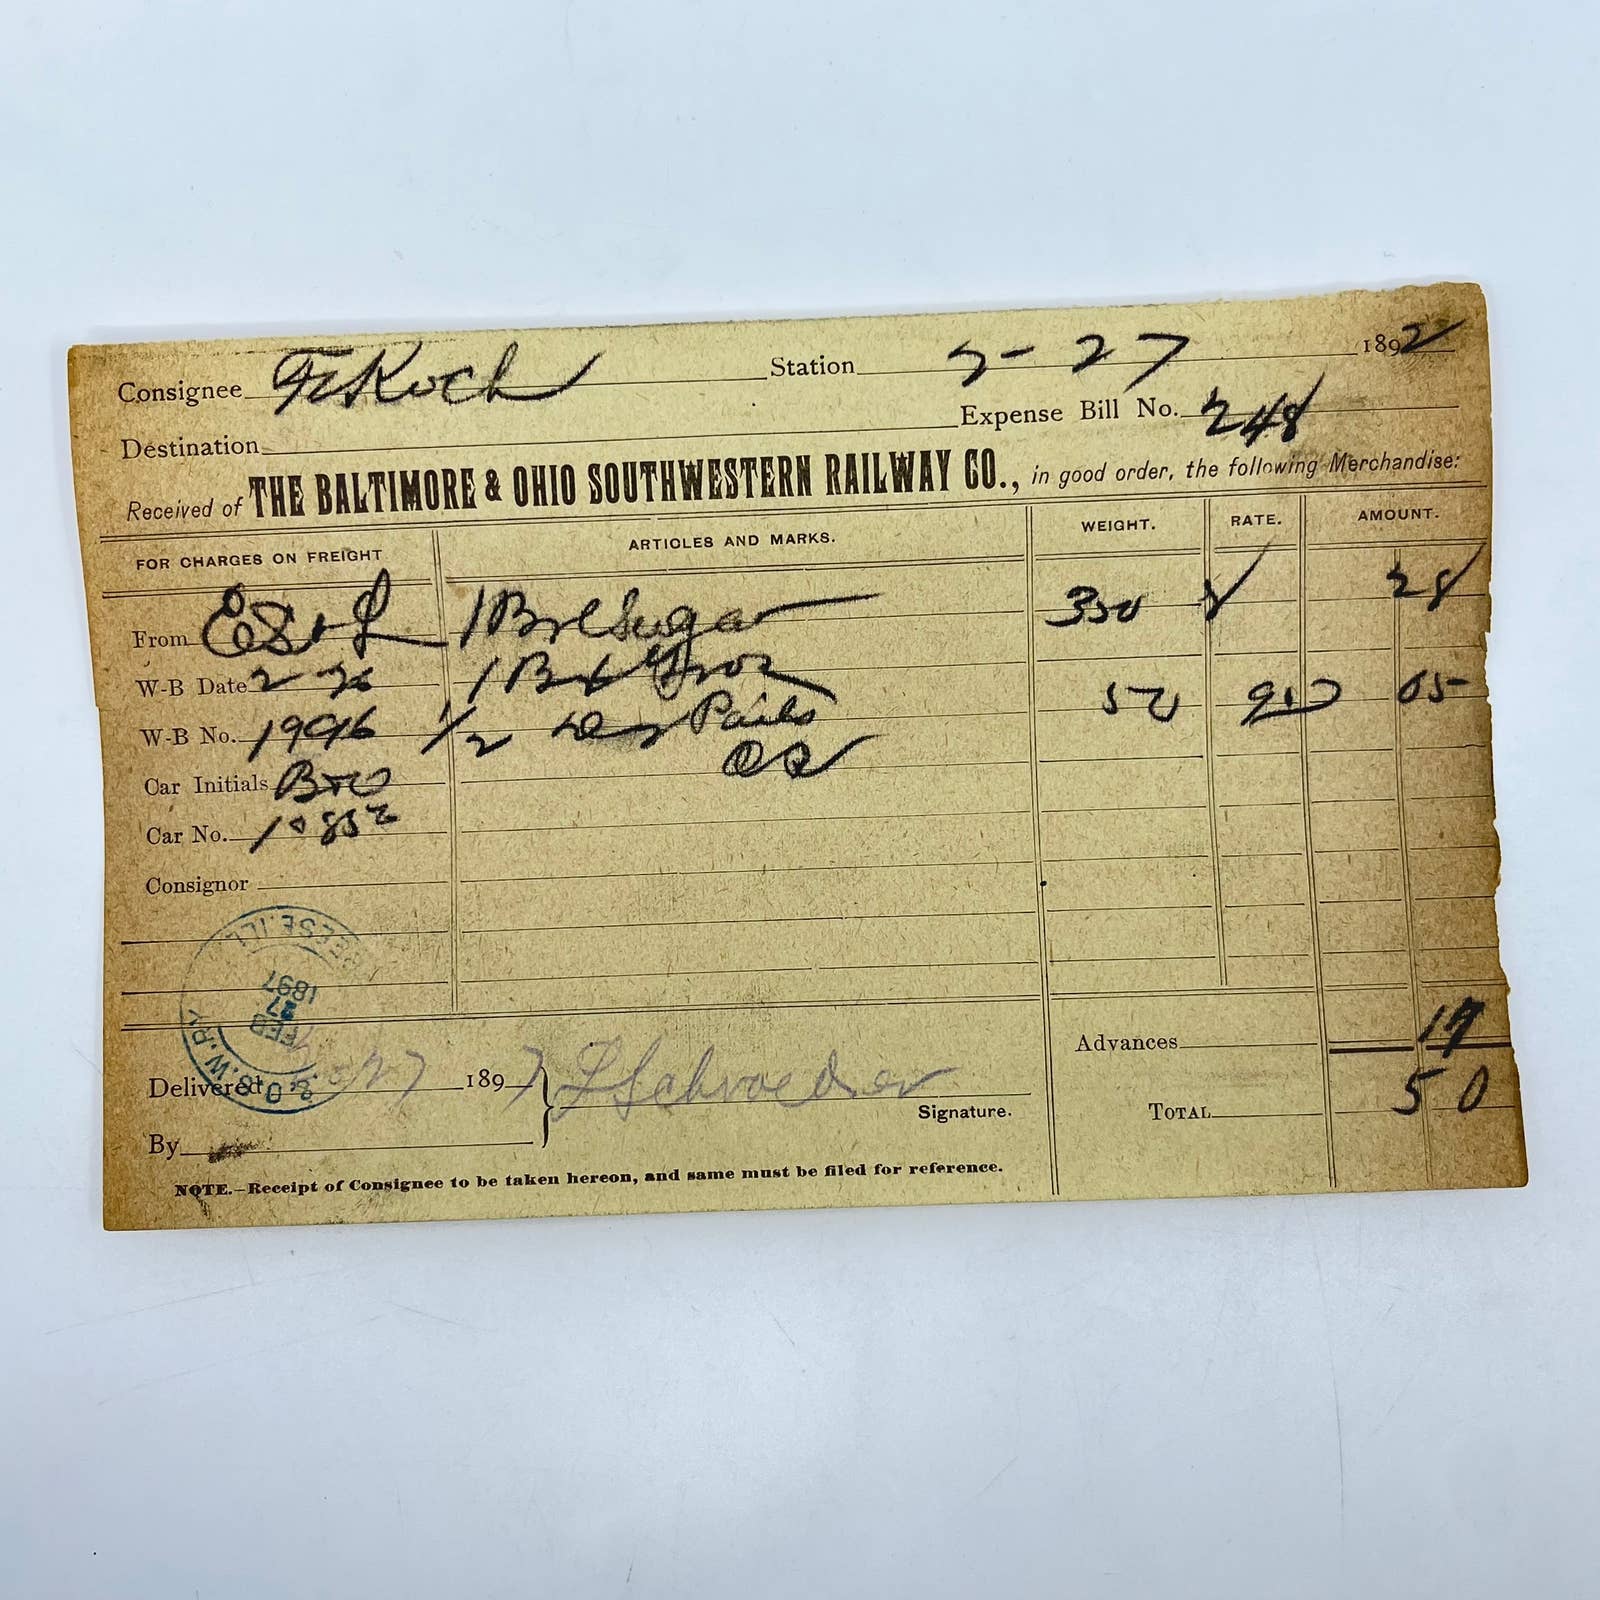 Consignee Fr Koch Station 2-27 1897
Destination Expense Bill No. 248
Received of THE BALTIMORE & OHIO SOUTHWESTERN RAILWAY CO., in good order, the following Merchandise:
FOR CHARGES ON FREIGHT ARTICLES AND MARKS. WEIGHT. RATE. AMOUNT.
From E St L 1 Brl Sugar 350 8 28
W-B Date 2 26 1 Bx
W-B No. 1996 1/2 Dz Pails 50 90 05
Car Initials B+O
Car No. 10852
Consignor
BREESE, ILL.
FEB
27
1897
B. & O. S. W. RY
Advances 17
Delivered 2 27 1897 F Schroeder
Signature.
TOTAL 50
By
NOTE.—Receipt of Consignee to be taken hereon, and same must be filed for reference.